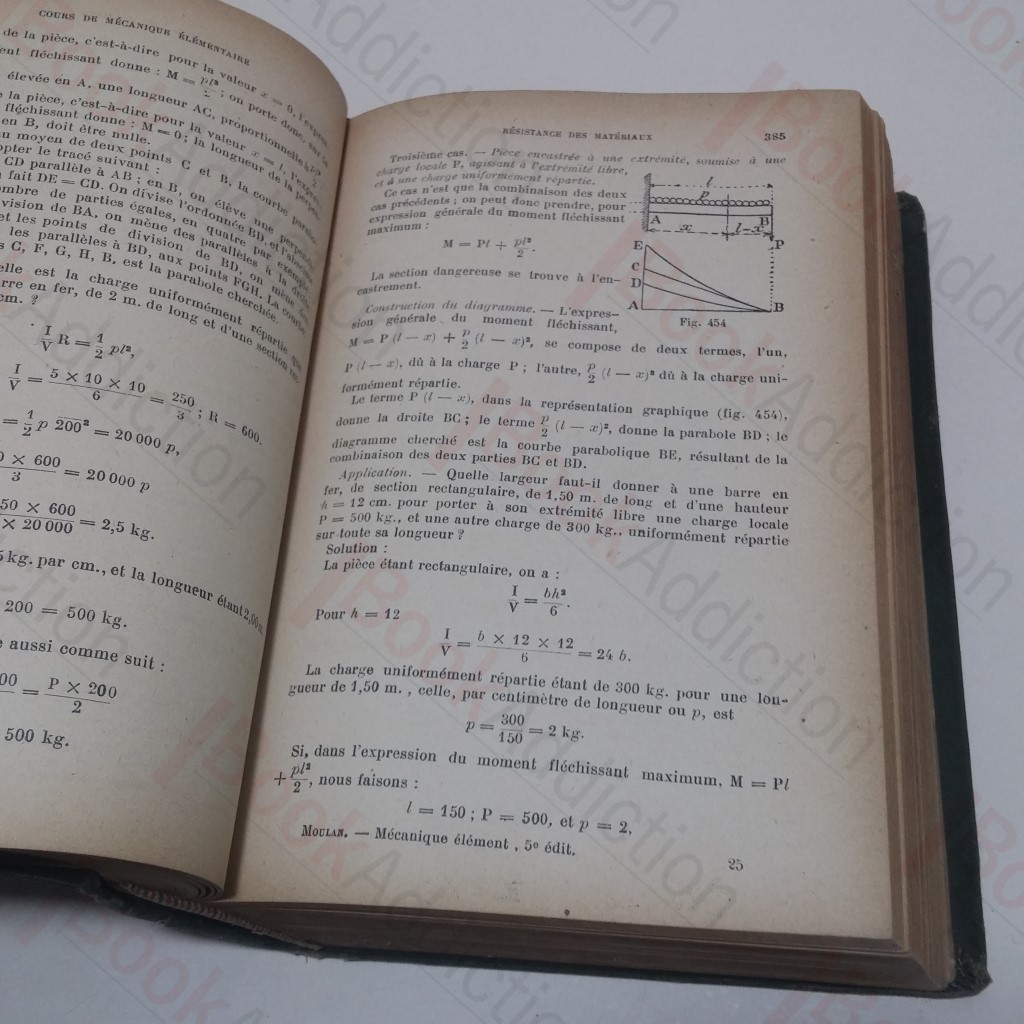 COURS DE MÉCANIQUE ÉLÉMENTAIRE
de la pièce, c'est-à-dire pour la valeur x = 0, l'expres-
ent fléchissant donne : M = pl²/2 ; on porte donc, sur la
élevée en A, une longueur AC, proportionnelle à pl²/2
e la pièce, c'est-à-dire pour la valeur x = l, l'expres-
fléchissant donne : M = 0 ; la longueur de la perpen-
en B, doit être nulle.
au moyen de deux points C et B, la courbe parabo-
opter le tracé suivant :
CD parallèle à AB ; en B, on élève une perpen-
n fait DE = CD. On divise l'ordonnée BD, et l'abscisse
ombre de parties égales, en quatre par exemple,
vision de BA, on mène des parallèles à la droite
et les points de division de BD, on mène des
les parallèles à BD, aux points FGH. La courbe
s C, F, G, H, B, est la parabole cherchée.
elle est la charge uniformément répartie que
arre en fer, de 2 m. de long et d'une section rec-
cm. ?
I/V R = 1/2 pl²,
I/V = 5 × 10 × 10/6 = 250/3 ; R = 600.
= 1/2 p 200² = 20 000 p,
0 × 600/3 = 20 000 p
50 × 600/× 20 000 = 2,5 kg.
5 kg. par cm., et la longueur étant 2,00 m.
200 = 500 kg.
e aussi comme suit :
00 = P × 200/2
500 kg.
RÉSISTANCE DES MATÉRIAUX 385
Troisième cas. — Pièce encastrée à une extrémité, soumise à une
charge locale P, agissant à l'extrémité libre,
et à une charge uniformément répartie.
Ce cas n'est que la combinaison des deux
cas précédents ; on peut donc prendre, pour
expression générale du moment fléchissant
maximum :
M = Pl + pl²/2.
La section dangereuse se trouve à l'en-
castrement.
l
p
A B
x l-x
E P
C
D
A B
Fig. 454
Construction du diagramme. — L'expres-
sion générale du moment fléchissant,
M = P (l — x) + p/2 (l — x)², se compose de deux termes, l'un,
P (l — x), dû à la charge P ; l'autre, p/2 (l — x)² dû à la charge uni-
formément répartie.
Le terme P (l — x), dans la représentation graphique (fig. 454),
donne la droite BC ; le terme p/2 (l — x)², donne la parabole BD ; le
diagramme cherché est la courbe parabolique BE, résultant de la
combinaison des deux parties BC et BD.
Application. — Quelle largeur faut-il donner à une barre en
fer, de section rectangulaire, de 1,50 m. de long et d'une hauteur
h = 12 cm. pour porter à son extrémité libre une charge locale
P = 500 kg., et une autre charge de 300 kg., uniformément répartie
sur toute sa longueur ?
Solution :
La pièce étant rectangulaire, on a :
I/V = bh²/6.
Pour h = 12
I/V = b × 12 × 12/6 = 24 b.
La charge uniformément répartie étant de 300 kg. pour une lon-
gueur de 1,50 m. , celle, par centimètre de longueur ou p, est
p = 300/150 = 2 kg.
Si, dans l'expression du moment fléchissant maximum, M = Pl
+ pl²/2, nous faisons :
l = 150 ; P = 500, et p = 2,
MOULAN. — Mécanique élément , 5e édit.
25
BookAddiction